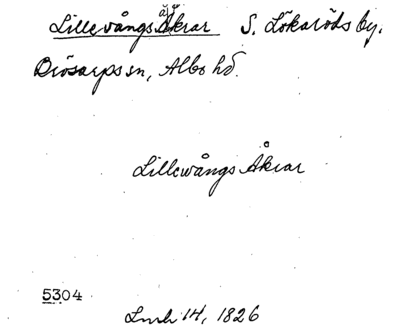 Lillevångs Åkrar S. Lökaröds by.
Brösarps sn, Albo hd.
Lillewångs Åkrar
5304
Lmh 14, 1826